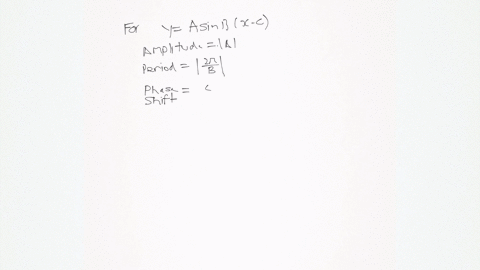 For y = A sin B (x-c)
Amplitude = |A|
Period = |2π/B|
Phase = c
Shift